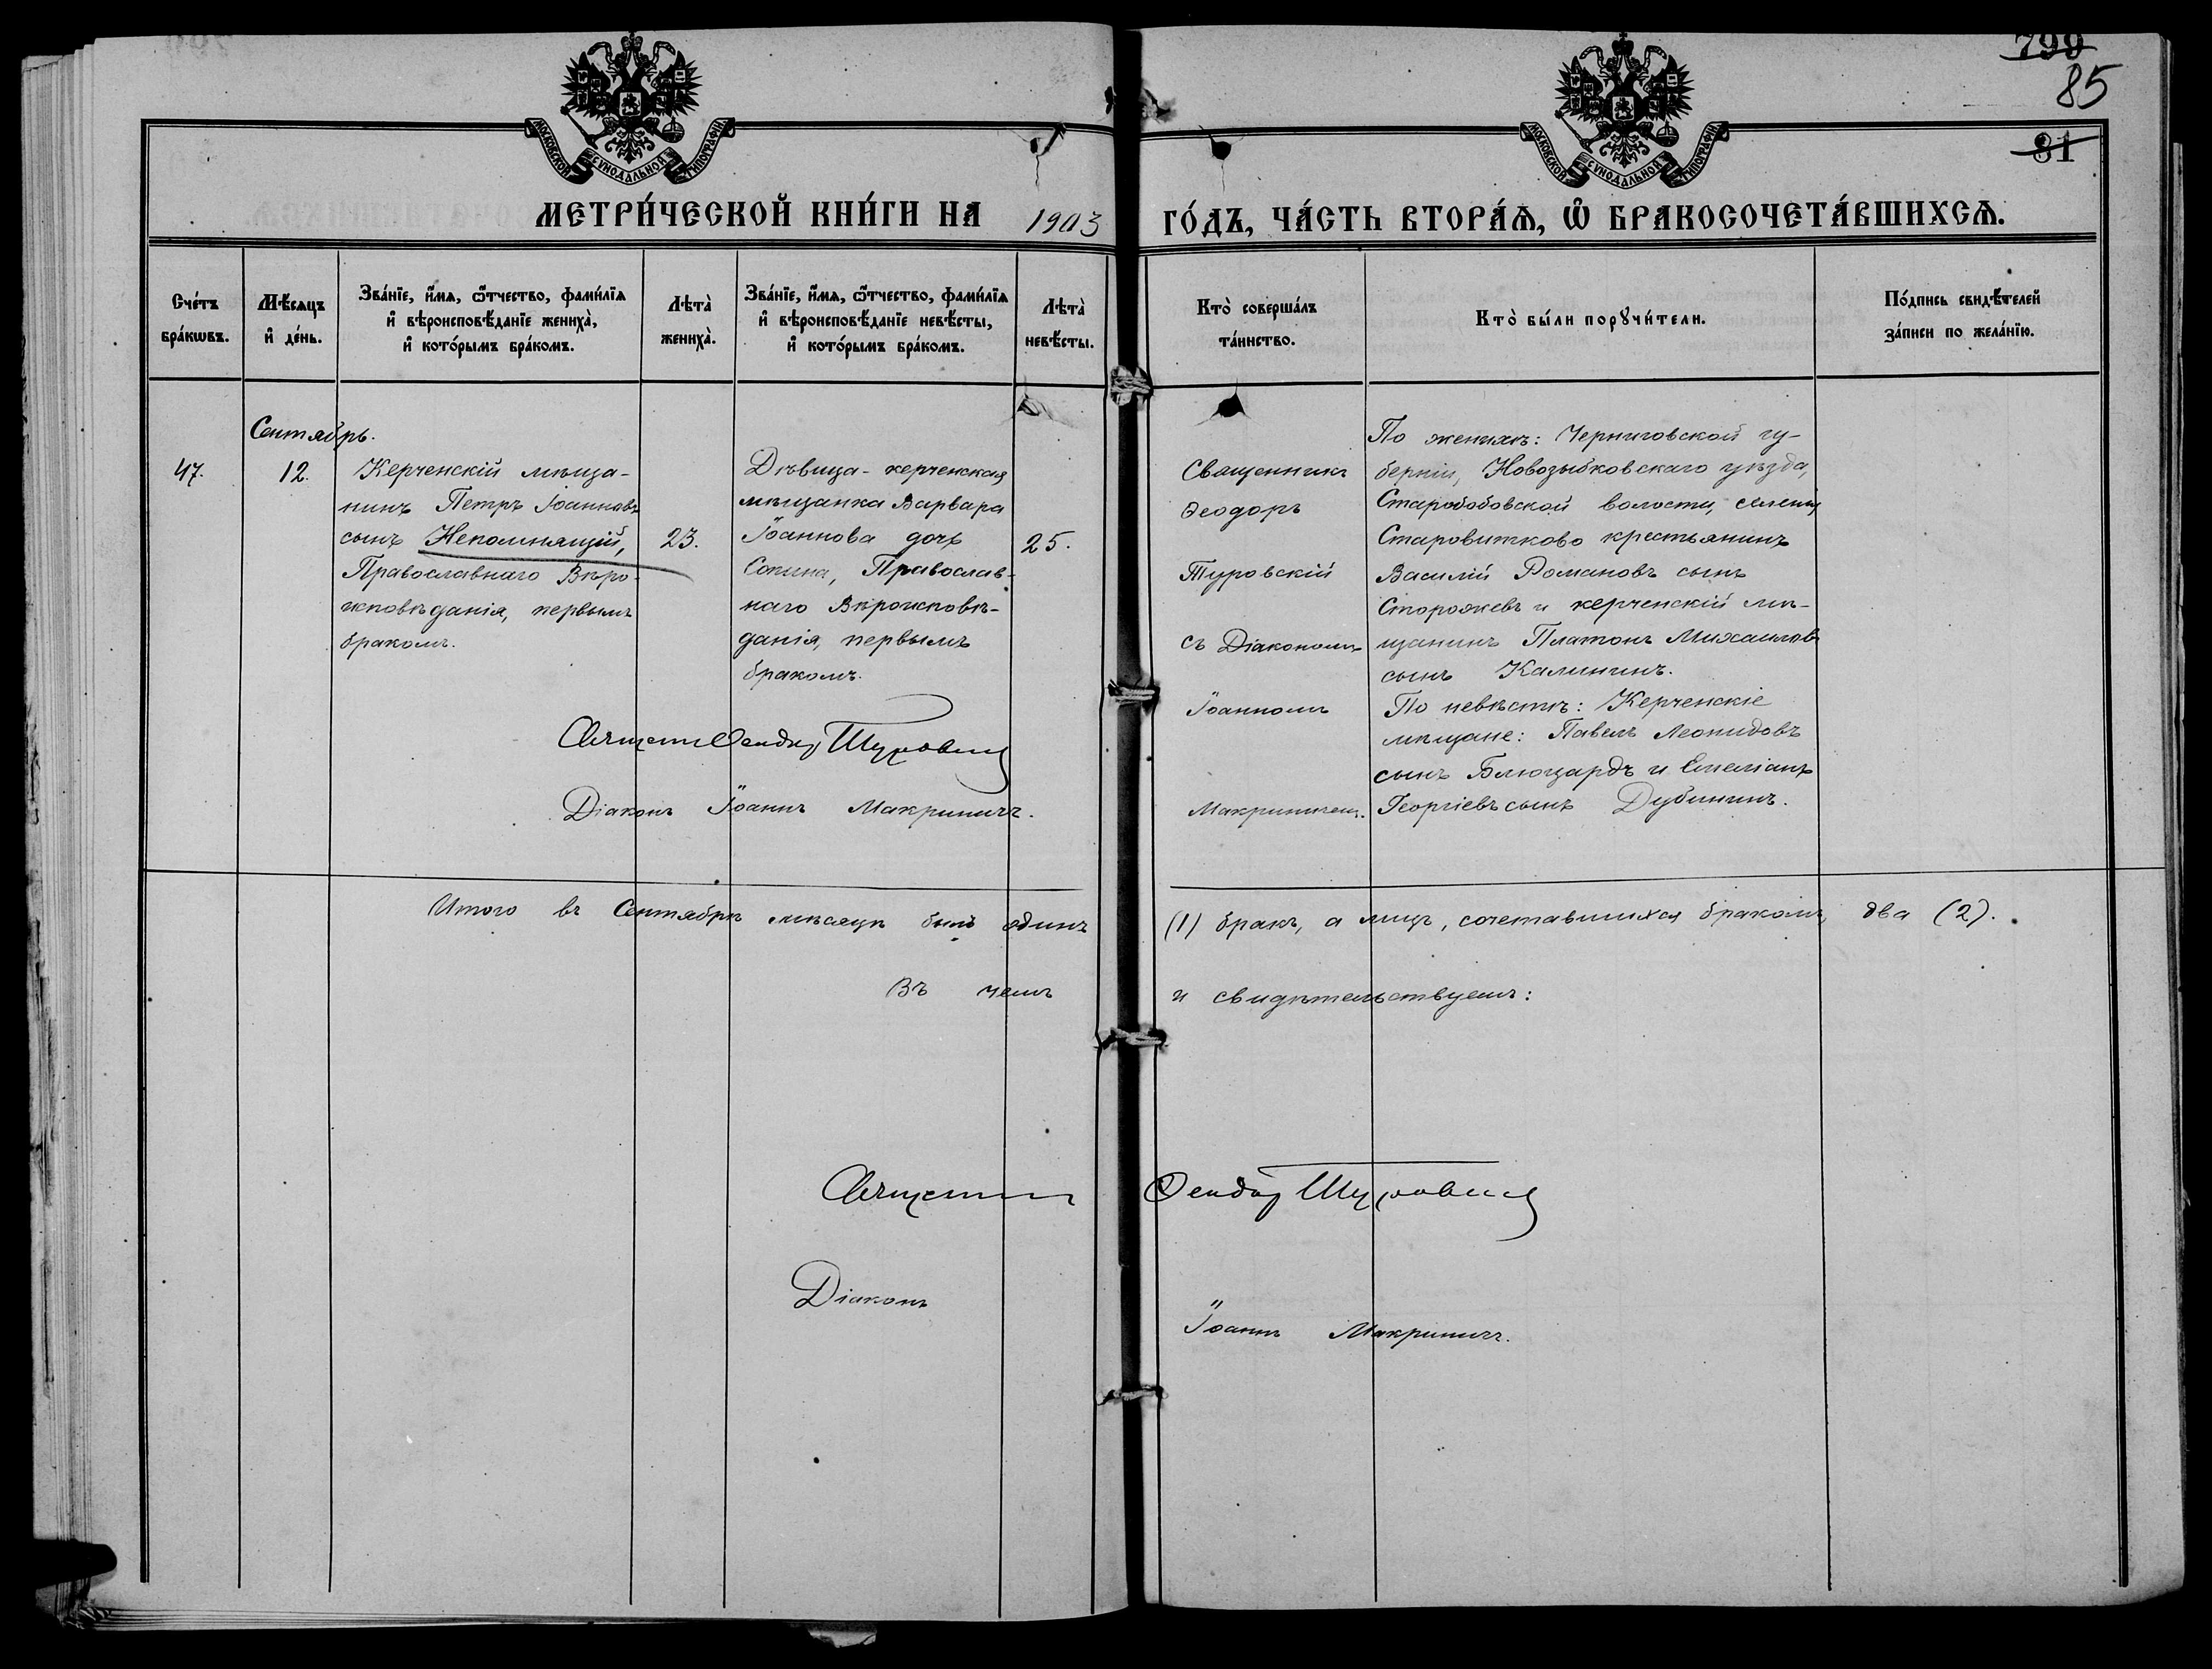 799
85
81
МОСКОВСКОЙ СУНОДАЛЬНОЙ ТИПОГРАФІИ
МОСКОВСКОЙ СУНОДАЛЬНОЙ ТИПОГРАФІИ
МЕТРИ́ЧЕСКОЙ КНИ́ГИ НА 1903 ГО́ДЪ, ЧА́СТЬ ВТОРА́Ѧ, Ѿ БРАКОСОЧЕТА́ВШИХСѦ.
Сче́тъ
бра́кѡвъ.
Мѣ́сѧцъ
и҆ де́нь.
Зва́нїе, и҆́мѧ, ѻ҆́тчество, фами́лїѧ
и҆ вѣроисповѣ́данїе жениха̀,
и҆ кото́рымъ бра́комъ.
Лѣта̀
жениха̀.
Зва́нїе, и҆́мѧ, ѻ҆́тчество, фами́лїѧ
и҆ вѣроисповѣ́данїе невѣ́сты,
и҆ кото́рымъ бра́комъ.
Лѣта̀
невѣ́сты.
Кто̀ соверша́лъ
та́инство.
Кто̀ бы́ли порꙋчи́тели.
По́дпись свидѣ́телей
за́писи по жела́нїю.
47.
Сентябрь.
12.
Керченскій мѣща-
нинъ Петръ Іоанновъ
сынъ Непомнящій,
Православнаго Вѣро-
исповѣданія, первымъ
бракомъ.
23.
Дѣвица - керченская
мѣщанка Варвара
Іоаннова дочь
Сопина, Православ-
наго Вѣроисповѣ-
данія, первымъ
бракомъ.
25.
Священникъ
Ѳеодоръ
Туровскій
съ Діакономъ
Іоанномъ
Макриничемъ.
По женихѣ: Черниговской гу-
берніи, Новозыбковскаго уѣзда,
Старобобовской волости, селенія
Старовитково крестьянинъ
Василій Романовъ сынъ
Сторожевъ и керченскій мѣ-
щанинъ Платонъ Михаиловъ
сынъ Калининъ.
По невѣстѣ: Керченскіе
мѣщане: Павелъ Леонидовъ
сынъ Блюзардъ и Емеліанъ
Георгіевъ сынъ Дубининъ.
Священникъ Ѳеодоръ Туровскій
Діаконъ Іоаннъ Макриничъ.
Итого въ Сентябрѣ мѣсяцѣ былъ одинъ (1) бракъ, а лицъ, сочетавшихся бракомъ, два (2).
Въ чемъ и свидѣтельствуемъ:
Священникъ Ѳеодоръ Туровскій
Діаконъ Іоаннъ Макриничъ.